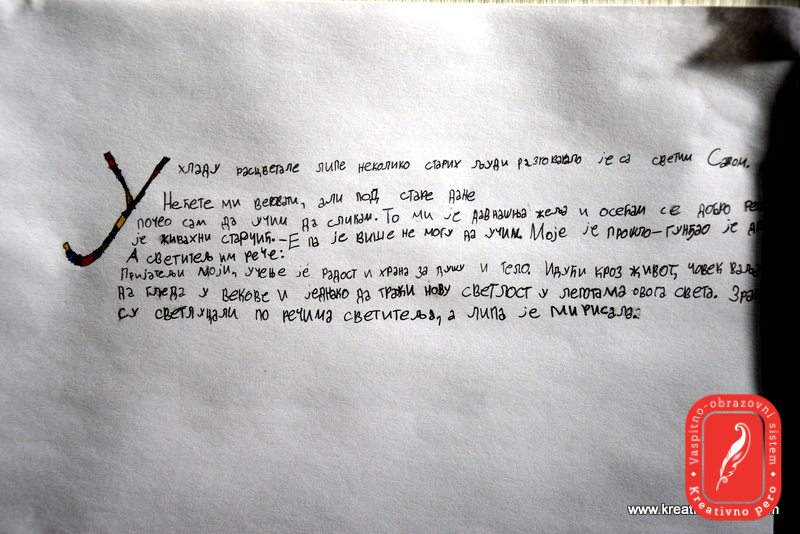 У хладу расцветале липе неколико старих људи разговарало је са светим Савом.
Нећете ми веровати, али под старе дане
почео сам да учим да сликам. То ми је давнашња жеља и осећам се добро
је живахни старчић. – Е па је више не могу да учим. Моје је прошло – гунђао је
А светитељ им рече:
Пријатељи моји, учење је радост и храна за душу и тело. Идући кроз живот, човек
да гледа у векове и једнако да тражи нову светлост у лепотама овога света.
су светлуцали по речима светитеља, а липа је мирисала.
Vaspitno-obrazovni sistem
Kreativno pero